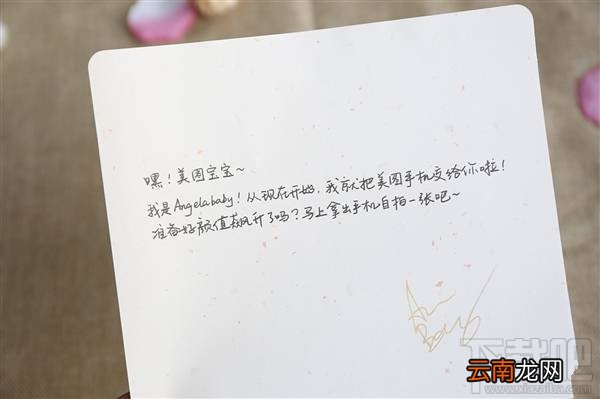 嘿！美图宝宝~
我是Angelababy！从现在开始，我就把美图手机交给你啦！
准备好颜值飙升了吗？马上拿出手机自拍一张吧~
下载吧
www.xiazaiba.com
云南龙网